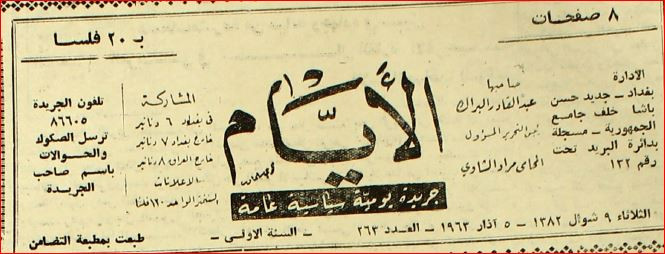 ٨ صفحات
بـ ٢٠ فلسا
الادارة
بغداد - جديد حسن
باشا خلف جامع
الجمهورية - مسجلة
بدائرة البريد تحت
رقم ١٢٢
صاحبها
عبدالقادر البراك
رئيس التحرير المسؤول
المحامي مراد الشاوي
الأيام
جريدة يومية سياسية عامة
المشاركة
في بغداد ٦ دنانير
خارج بغداد ٧ دنانير
خارج العراق ٨ دنانير
الاعلانات
تلفون الجريدة
٨٦٦٠٥
ترسل الصكوك
والحوالات
باسم صاحب
الجريدة
الثلاثاء ٩ شوال ١٣٨٢ - ٥ آذار ١٩٦٣ - العدد ٢٦٣ - السنة الاولى -
طبعت بمطبعة التضامن